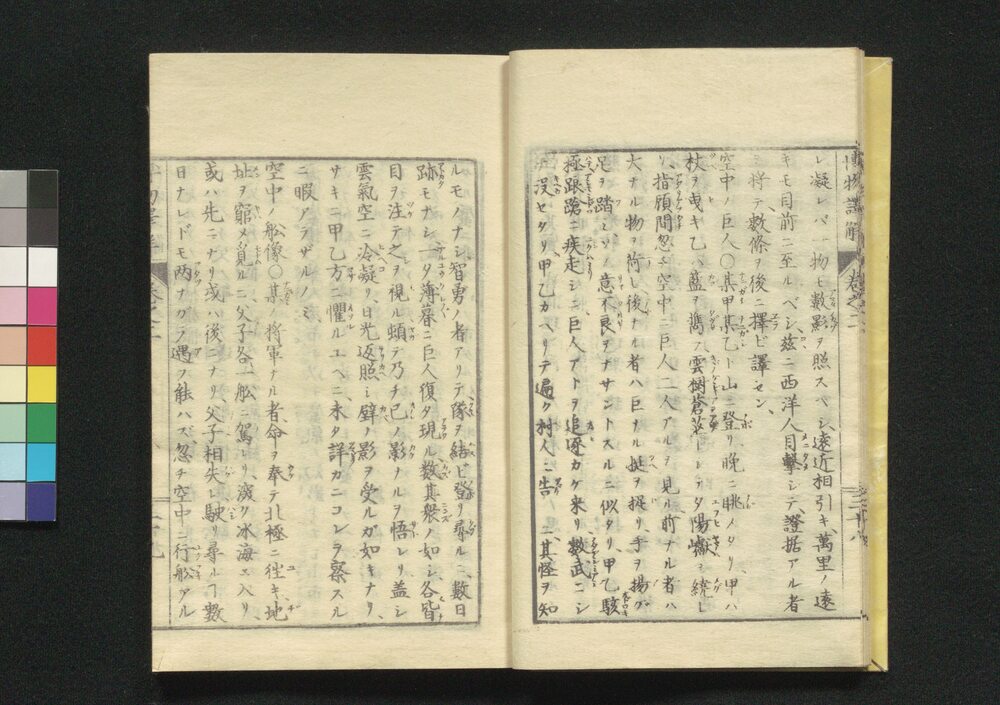 博物語解　卷之二　二十八
レ凝レバ一物ヒ數影ヲ照スベシ、遠近相引キ、萬里ノ遠
キモ目前ニ至ルベシ、茲ニ西洋人目擊シテ、證据アル者
ニ將テ數條ヲ後ニ擇ビ譯セン
空中ノ巨人〇某甲某乙ト山ニ登リ晚ニ眺メタリ甲ハ
杖ヲ曳キ乙ハ藍ヲ雲樹蒼茫トシタ陽
リ、指顧間忽ニ空中ニ巨人二人アルヲ見ル前ナル者ハ
大ナル物ヲ荷ヒ後ナル者ハ巨ナル挺ヲ捉リ、手ヲ揚グ
足ヲ踏ミソノ意不良ヲナサントスルニ似タリ、甲乙駭
極踉蹌ニ疾走シニ巨人アトヲ追逐カケ來リ數武ニシ
没セタリ甲乙カヘリテ遍ク村人ニ告ニ其怪ヲ知
ルモノナシ智勇ノ者アリテ隊ヲ結ビ登リ尋ルニ、數日
跡モナシ一夕薄暮ニ巨人復タ現ル數其衆ノ如シ、各皆
目ヲ注テ之ヲ視ル頓テ乃チ己ノ影ナルヲ悟レリ蓋シ
雲氣空ニ冷凝リ、日光返照シ壁ノ影ヲ受ルガ如キナリ、
サキニ甲乙方ニ懼ルユヘニ未タ詳カニコレヲ察スル
ニ暇アラザルノミ
空中ノ船像〇某ノ將軍ナル者、命ヲ奉テ北極ニ往キ、地
址ヲ窮メ覓ルニ、父子各一船ニ駕レリ、深ク冰海エ入リ、
或ハ先ニナリ或ハ後ニナリ父子相失レ駛リ尋ルヿ數
日ナレドモ两ナガラ遇ヲ能ハズ、忽チ空中ニ行船アル
二十九